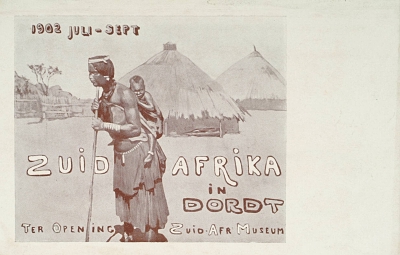 1902 JULI-SEPT
ZUID AFRIKA
in
DORDT
TER OPENING ZUID-AFR MUSEUM